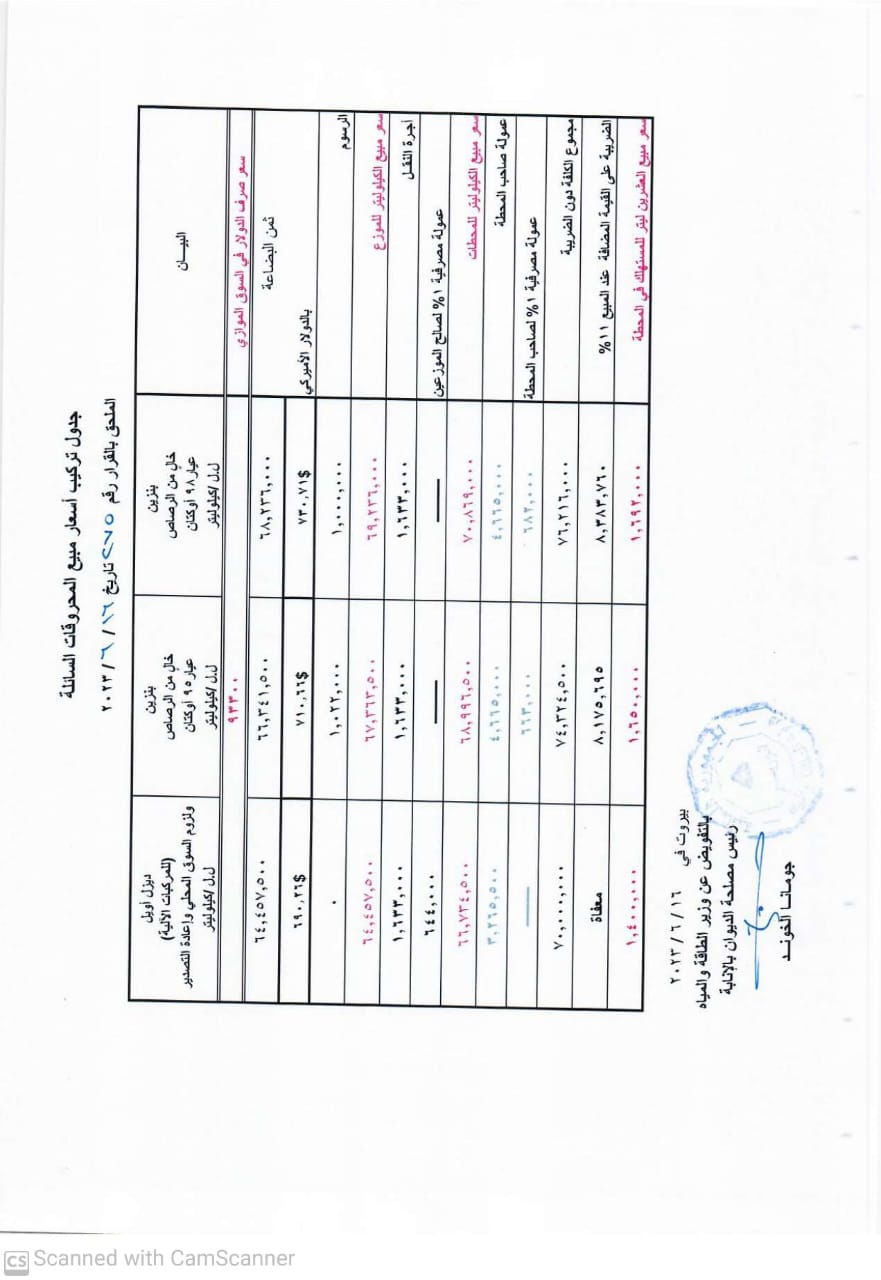 جدول تركيب أسعار مبيع المحروقات السائلة
الملحق بالقرار رقم ٢٧٥ تاريخ ١٦ / ٦ / ٢٠٢٣
البيــان
بنزين
خالٍ من الرصاص
عيار ٩٨ أوكتان
ل.ل/كيلوليتر
بنزين
خالٍ من الرصاص
عيار ٩٥ أوكتان
ل.ل/كيلوليتر
ديزل أويل
(للمركبات الآلية)
ولزوم السوق المحلي وإعادة التصدير
ل.ل/كيلوليتر
سعر صرف الدولار في السوق الموازي ٩٣٣٠٠
ثمن البضاعة ٦٨,٢٣٦,٠٠٠ ٦٦,٣٤١,٥٠٠ ٦٤,٤٥٧,٥٠٠
بالدولار الأميركي ٧٣٠,٧١$ ٧١٠,٦٦$ ٦٩٠,٢٦$
الرسوم ١,٠٠٠,٠٠٠ ١,٠٢٢,٠٠٠ ٠
سعر مبيع الكيلوليتر للموزع ٦٩,٢٣٦,٠٠٠ ٦٧,٣٦٣,٥٠٠ ٦٤,٤٥٧,٥٠٠
أجرة النقـل ١,٦٣٣,٠٠٠ ١,٦٣٣,٠٠٠ ١,٦٣٣,٠٠٠
عمولة مصرفية ١% لصالح الموزعين — — ٦٤٤,٠٠٠
سعر مبيع الكيلوليتر للمحطات ٧٠,٨٦٩,٠٠٠ ٦٨,٩٩٦,٥٠٠ ٦٦,٧٣٤,٥٠٠
عمولة صاحب المحطة ٤,٦٦٥,٠٠٠ ٤,٦٦٥,٠٠٠ ٣,٢٦٥,٥٠٠
عمولة مصرفية ١% لصاحب المحطة ٦٨٢,٠٠٠ ٦٦٣,٠٠٠ —
مجموع الكلفة دون الضريبة ٧٦,٢١٦,٠٠٠ ٧٤,٣٢٤,٥٠٠ ٧٠,٠٠٠,٠٠٠
الضريبة على القيمة المضافة عند المبيع ١١% ٨,٣٨٣,٧٦٠ ٨,١٧٥,٦٩٥ معفاة
سعر مبيع العشرين ليتر للمستهلك في المحطة ١,٦٩٢,٠٠٠ ١,٦٥٠,٠٠٠ ١,٤٠٠,٠٠٠
بيروت في ١٦ / ٦ / ٢٠٢٣
بالتفويض عن وزير الطاقة والمياه
رئيس مصلحة الديوان بالإنابة
جومانـا الخونـد
CS Scanned with CamScanner